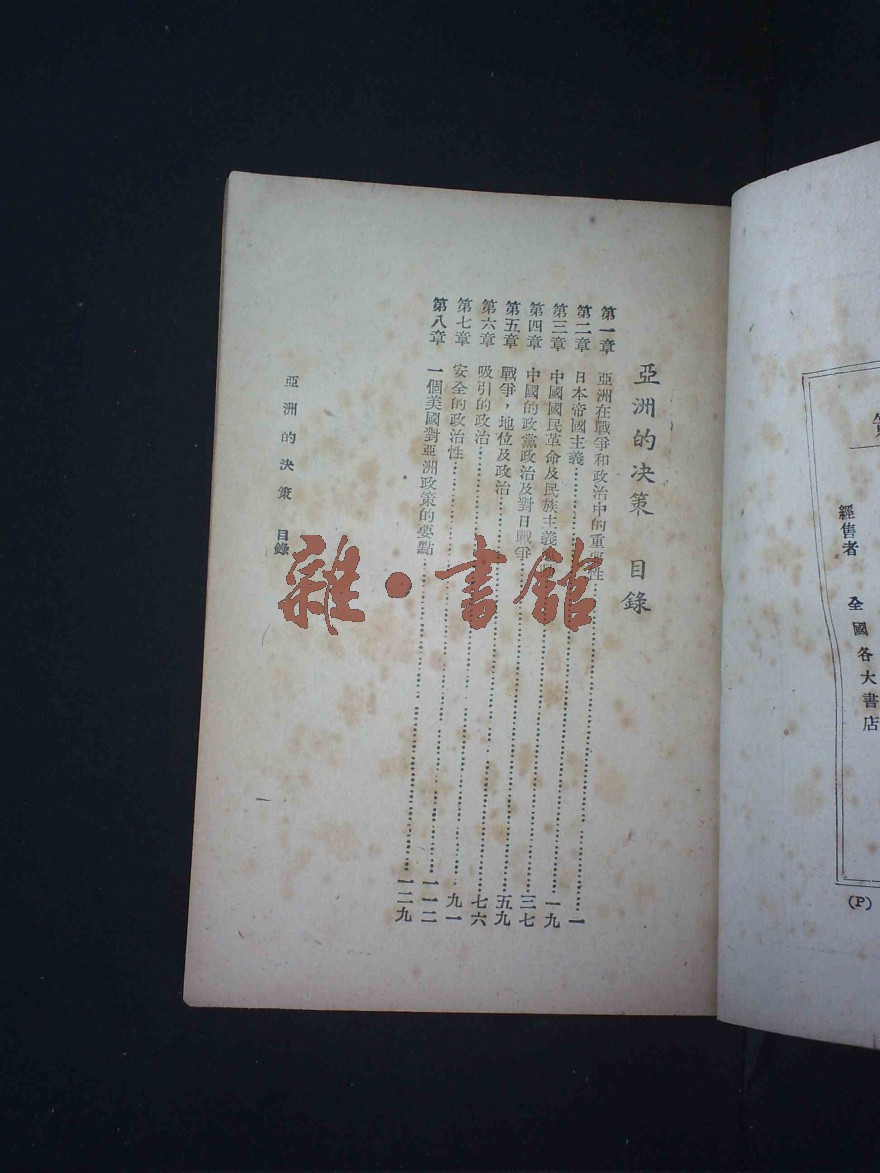 經售者 全國各大書店
(P)
亞洲的決策 目錄
第一章 亞洲在戰爭和政治中的重要性……一
第二章 日本帝國主義……一九
第三章 中國國民革命及民族主義……三七
第四章 中國的政黨政治及對日戰爭……五九
第五章 戰爭，地位及政治……七六
第六章 吸引的政治……九一
第七章 安全的政治性……一一二
第八章 一個美國對亞洲政策的要點……一二九
亞洲的決策 目錄
一
雜·書館